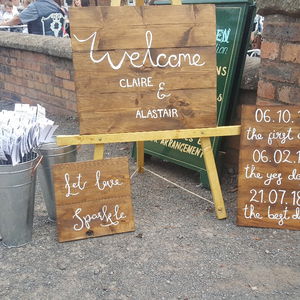 Welcome
CLAIRE
&
ALASTAIR
ARRANGEMENTS
let love
Sparkle
06.10.
the first d
06.02.1
the yes da
21.07.18
the best da